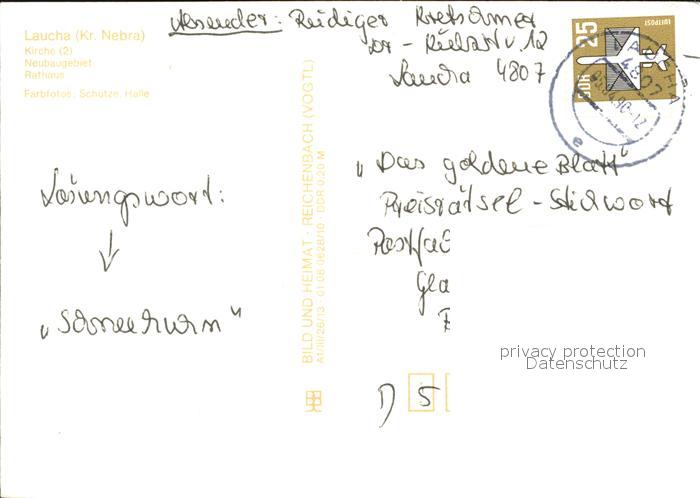 Absender: Rüdiger Kretschmer
12
Laucha 4807
Laucha (Kr. Nebra)
Kirche (2)
Neubaugebiet
Rathaus
Farbfotos: Schütze, Halle
DDR 25
LUFTPOST
LAUCHA
4807
e
BILD UND HEIMAT · REICHENBACH (VOGTL)
A1/III/26/13 01 08 0628/10 · DDR 0,20 M
Lösungswort:
↓
„Schneehuhn"
„Das goldene Blatt"
Preisrätsel-Stichwort
Postfac
Gla
D 5
privacy protection
Datenschutz